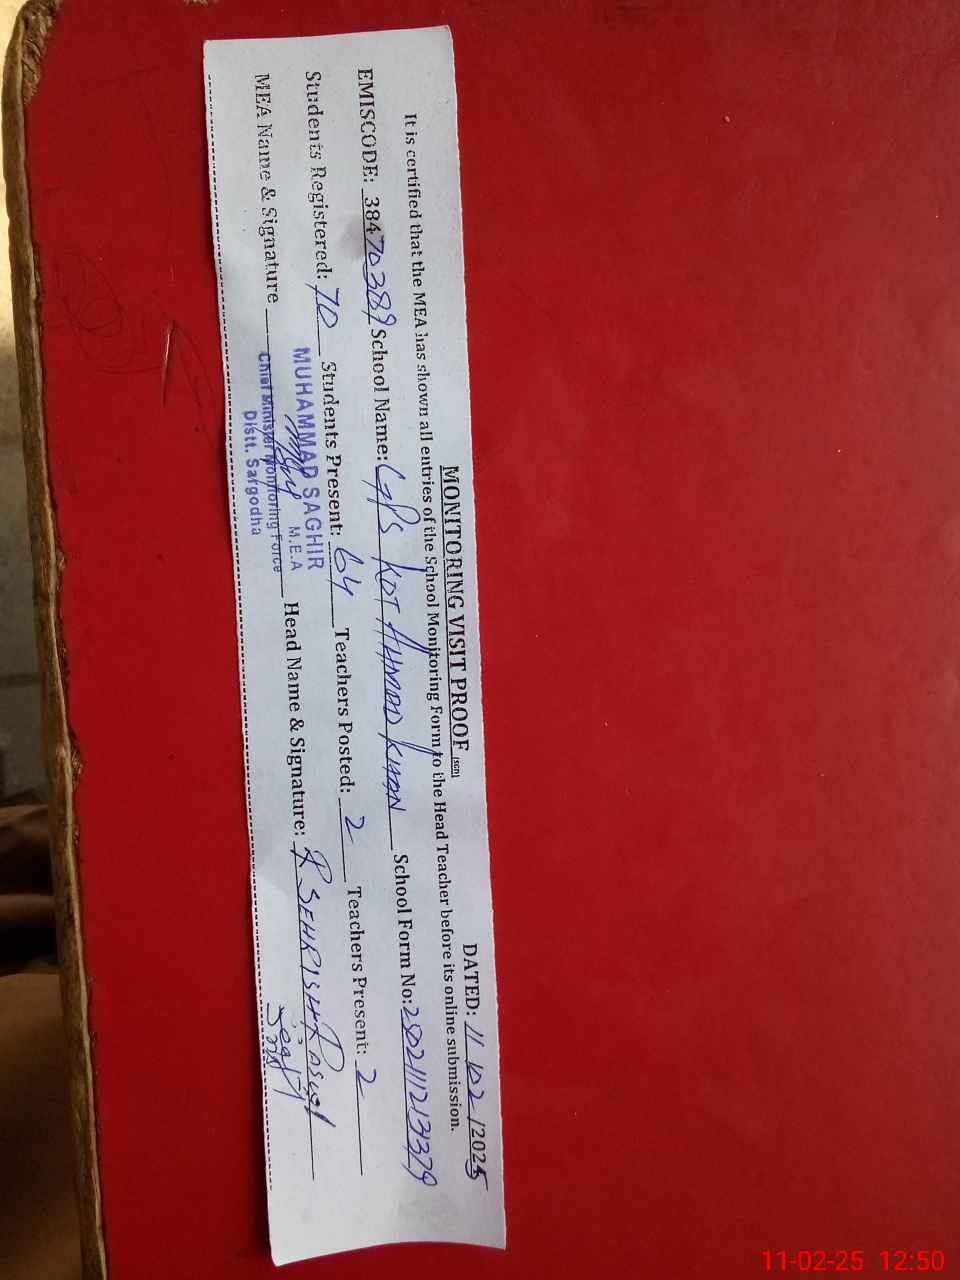 MONITORING VISIT PROOF (SGD) DATED: 11/02/2025
It is certified that the MEA has shown all entries of the School Monitoring Form to the Head Teacher before its online submission.
EMISCODE: 38470389 School Name: GPS KOT AHMAD KHAN School Form No:
Students Registered: 70 Students Present: 64 Teachers Posted: 2 Teachers Present: 2
MEA Name & Signature Head Name & Signature: SEHRISH Rasool
MUHAMMAD SAGHIR
M.E.A
Chief Minister Monitoring Force
Distt. Sargodha
11-02-25 12:50